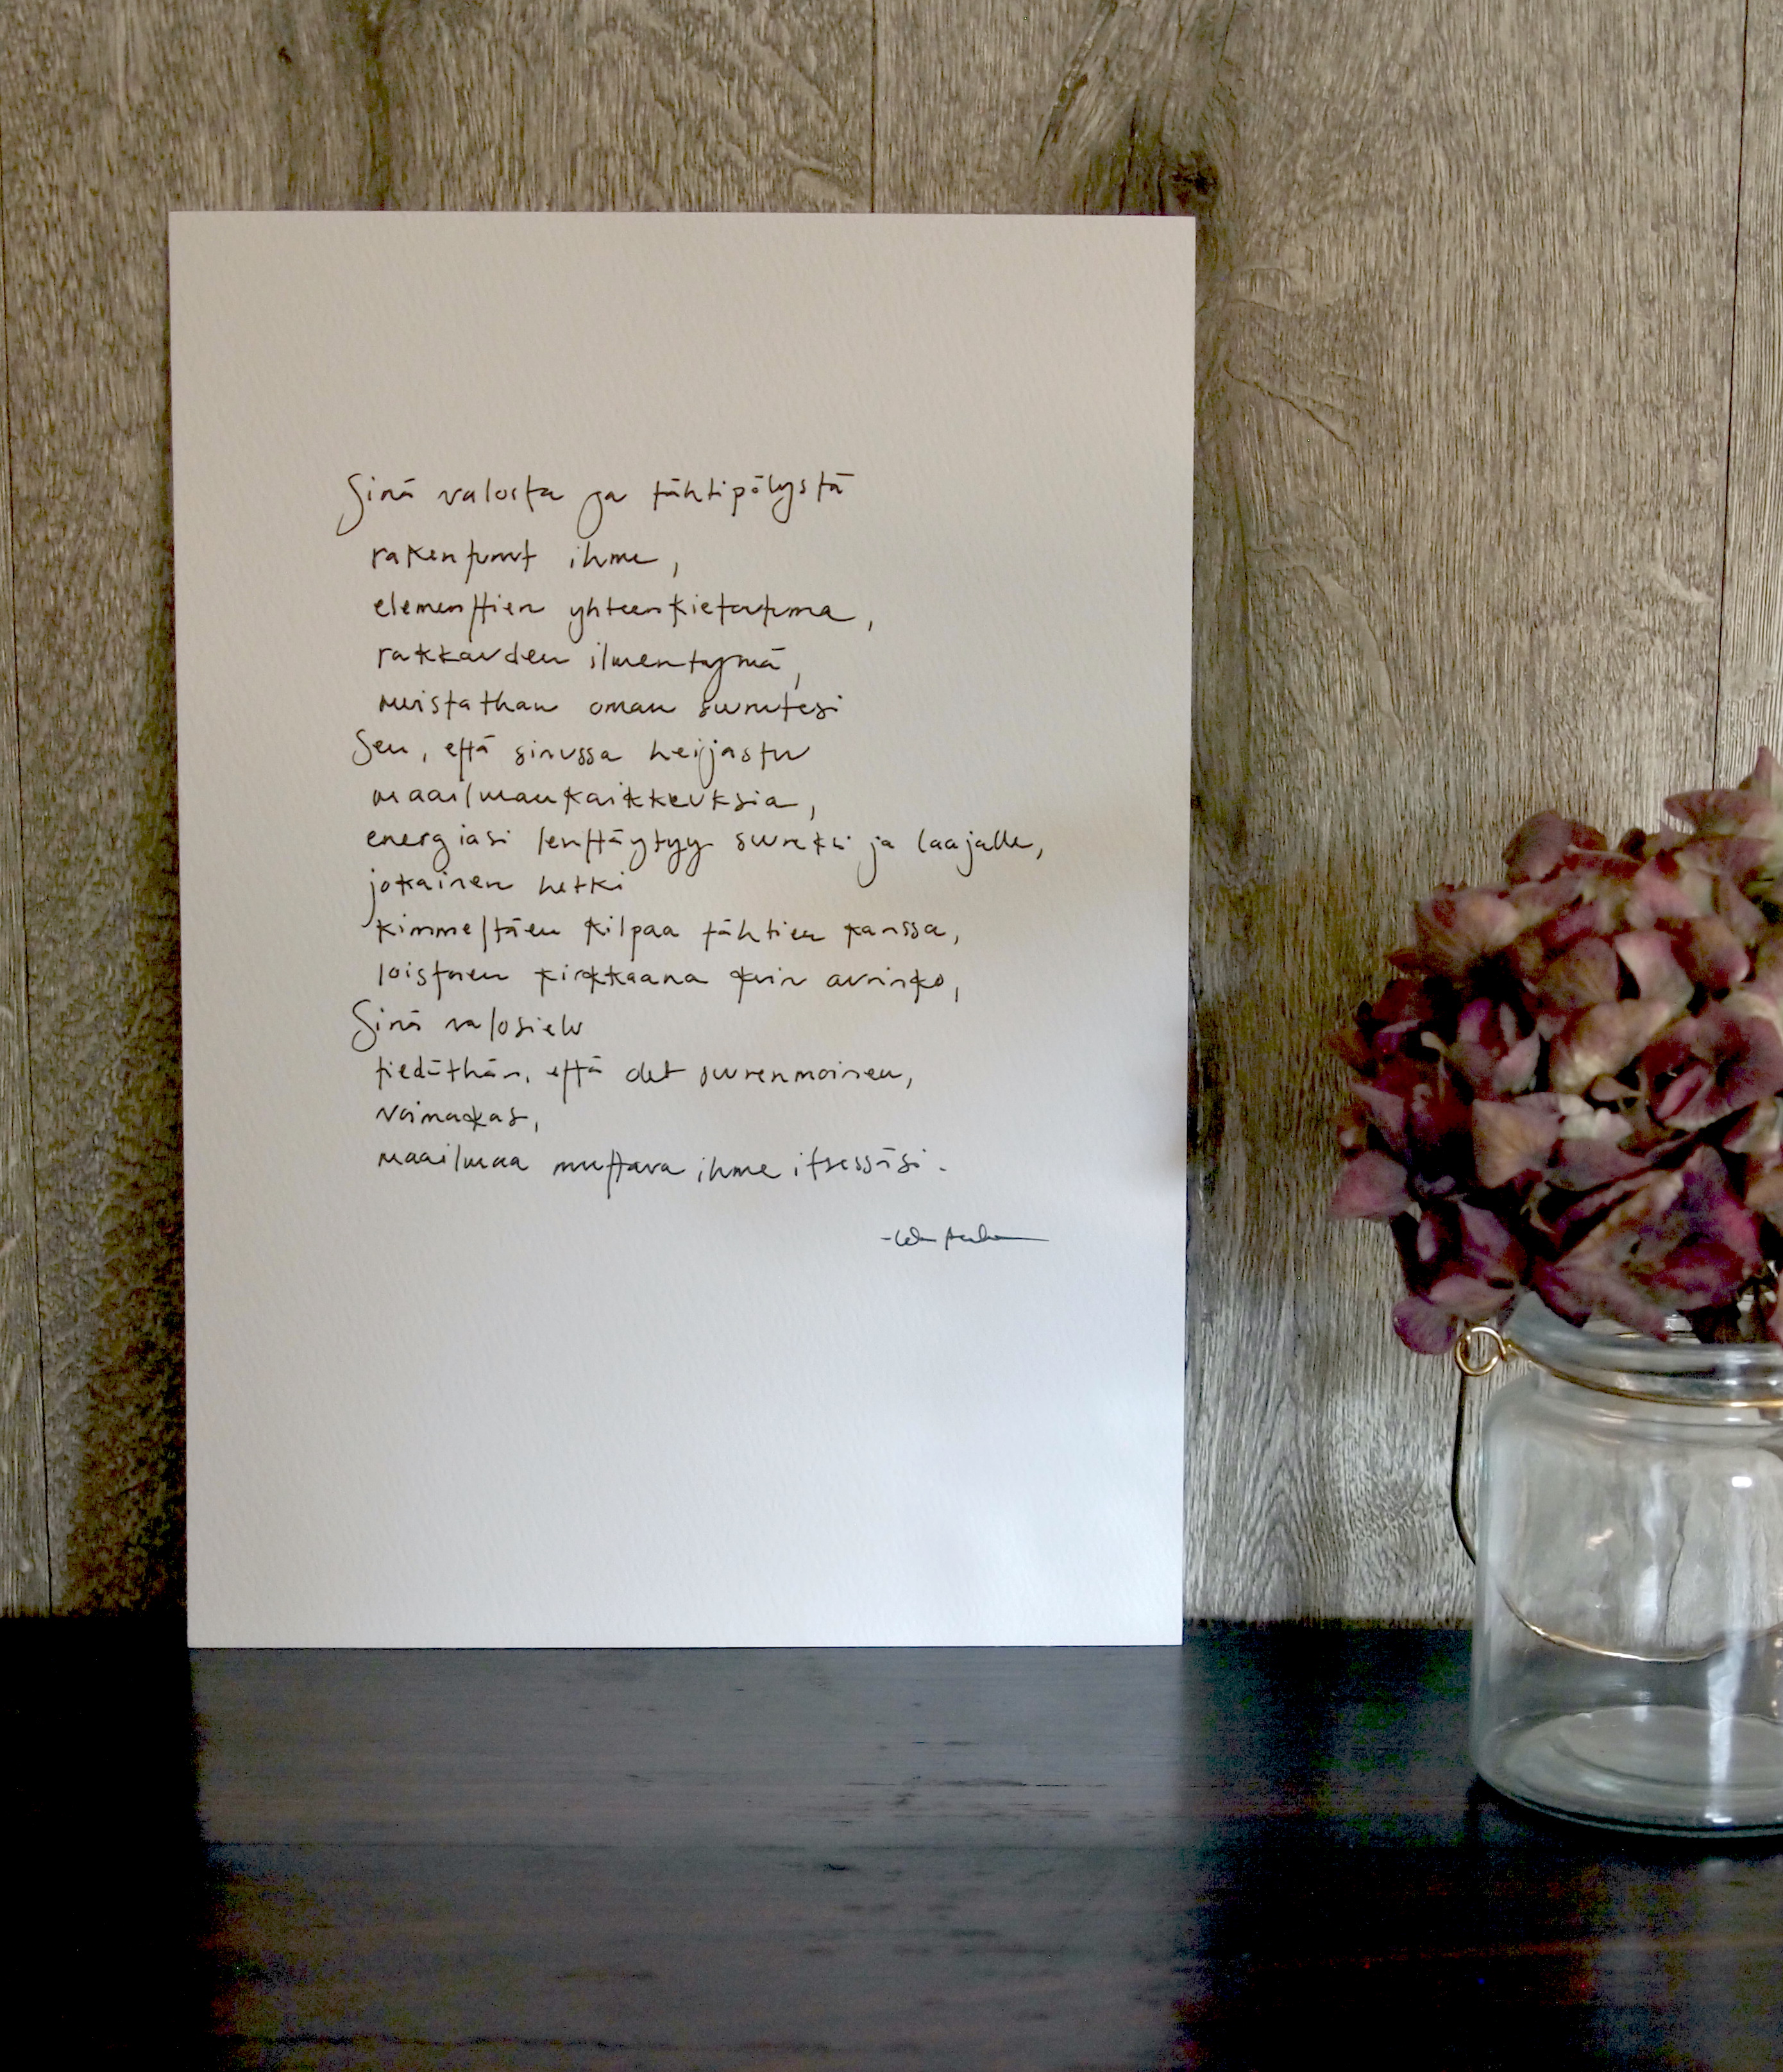 Sinä valosta ja tähtipölystä
rakentunut ihme,
elementtien yhteenkietoutuma,
rakkauden ilmentymä,
muistathan oman suuruutesi
Sen, että sinussa heijastuu
maailmankaikkeuksia,
energiasi levittäytyy suureksi ja laajalle,
jokainen hetki
kimmeltäen kilpaa tähtien kanssa,
loistaen kirkkaana kuin aurinko,
Sinä valosielu
tiedäthän, että olet suurenmoinen,
voimakas,
maailmaa muuttava ihme itsessäsi.